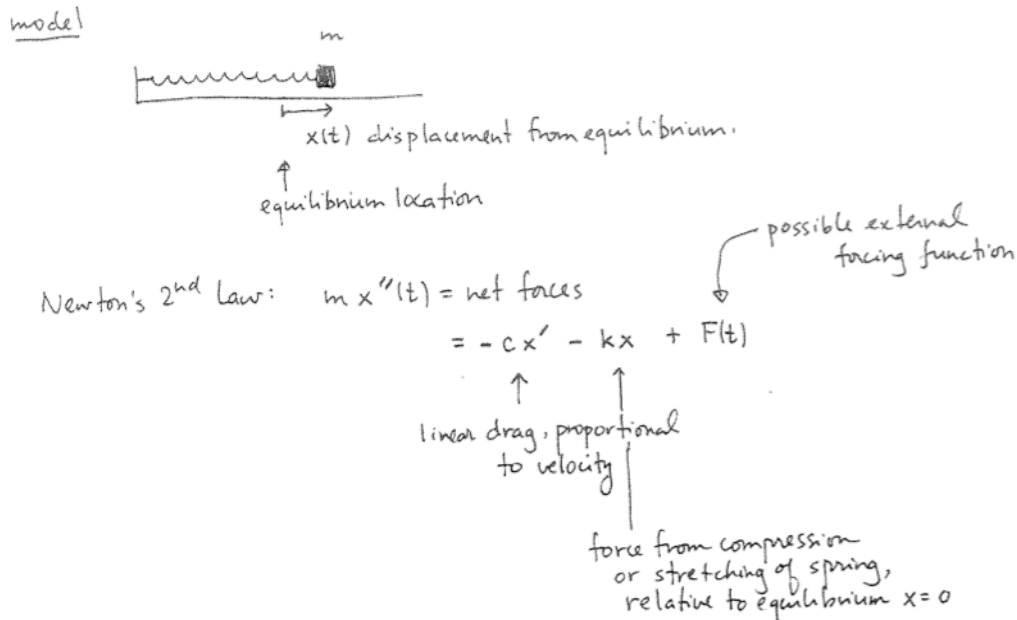 model
m
x(t) displacement from equilibrium.
equilibrium location
possible external
forcing function
Newton's 2nd Law: m x"(t) = net forces
= - c x' - kx + F(t)
linear drag, proportional
to velocity
force from compression
or stretching of spring,
relative to equilibrium x=0